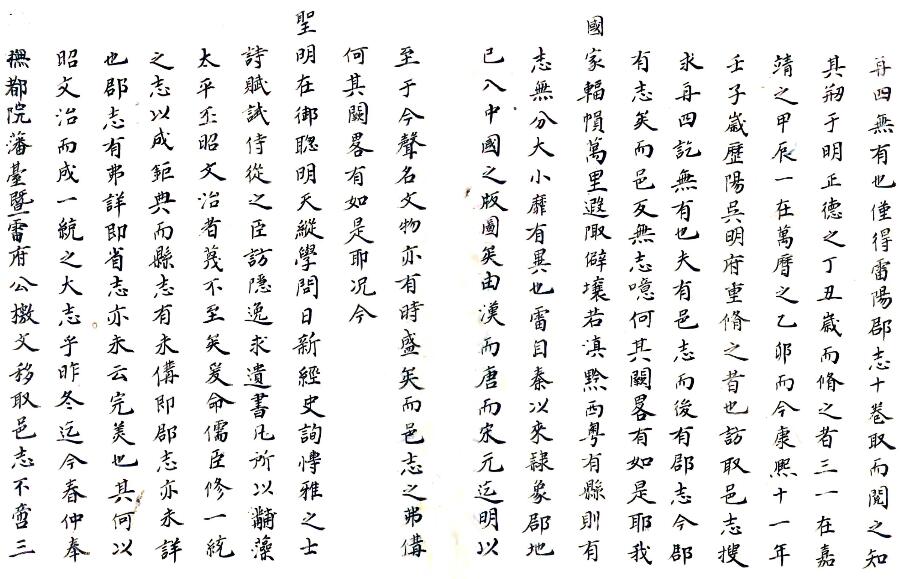 再四無有也僅得雷陽郡志十卷取而閱之知
其剏于明正德之丁丑歲而脩之者三一在嘉
靖之甲辰一在萬曆之乙卯而今康熙十一年
壬子歲歷陽吳明府重脩之昔也訪取邑志搜
求再四訖無有也夫有邑志而後有郡志今郡
有志矣而邑反無志噫何其闕畧有如是耶我
國家輻幀萬里遐陬僻壤若滇黔西粤有縣則有
志無分大小靡有異也雷自秦以來隸象郡地
已入中國之版圖矣由漢而唐而宋元迄明以
至于今聲名文物亦有時盛矣而邑志之弗偹
何其闕畧有如是耶况今
聖明在御聰明天縱學問日新經史詢愽雅之士
詩賦試侍從之臣訪隱逸求遺書凡所以黼藻
太平丕昭文治者蔑不至矣爰命儒臣修一統
之志以成鉅典而縣志有未偹即郡志亦未詳
也郡志有弗詳即省志亦未云完美也其何以
昭文治而成一統之大志乎昨冬迄今春仲奉
撫都院藩臺暨雷府公檄文移取邑志不啻三